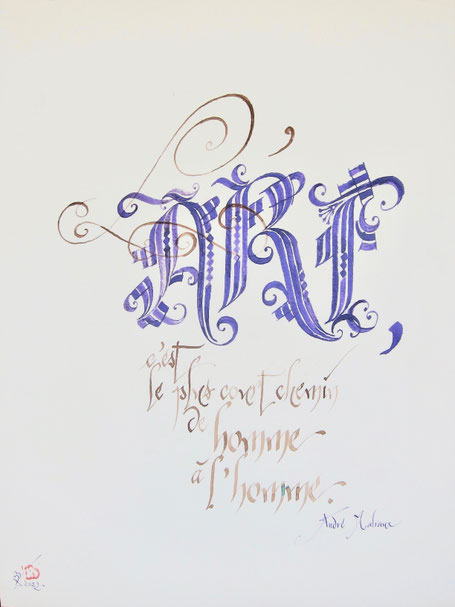 L'ART,
c'est
le plus court chemin
de homme
à l'homme.
André Malraux